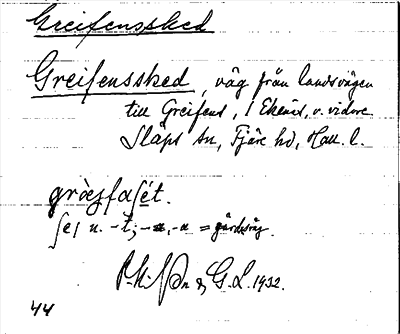 Greifenssked
Greifenssked, väg från landsvägen
till Greifens, i Ekenäs, o. vidare.
Släps sn, Fjäre hd, Hall. l.
gràɛjfaʃét.
ʃet n. -t; -a, -a = gårdsväg.
& G. L. 1932.
44